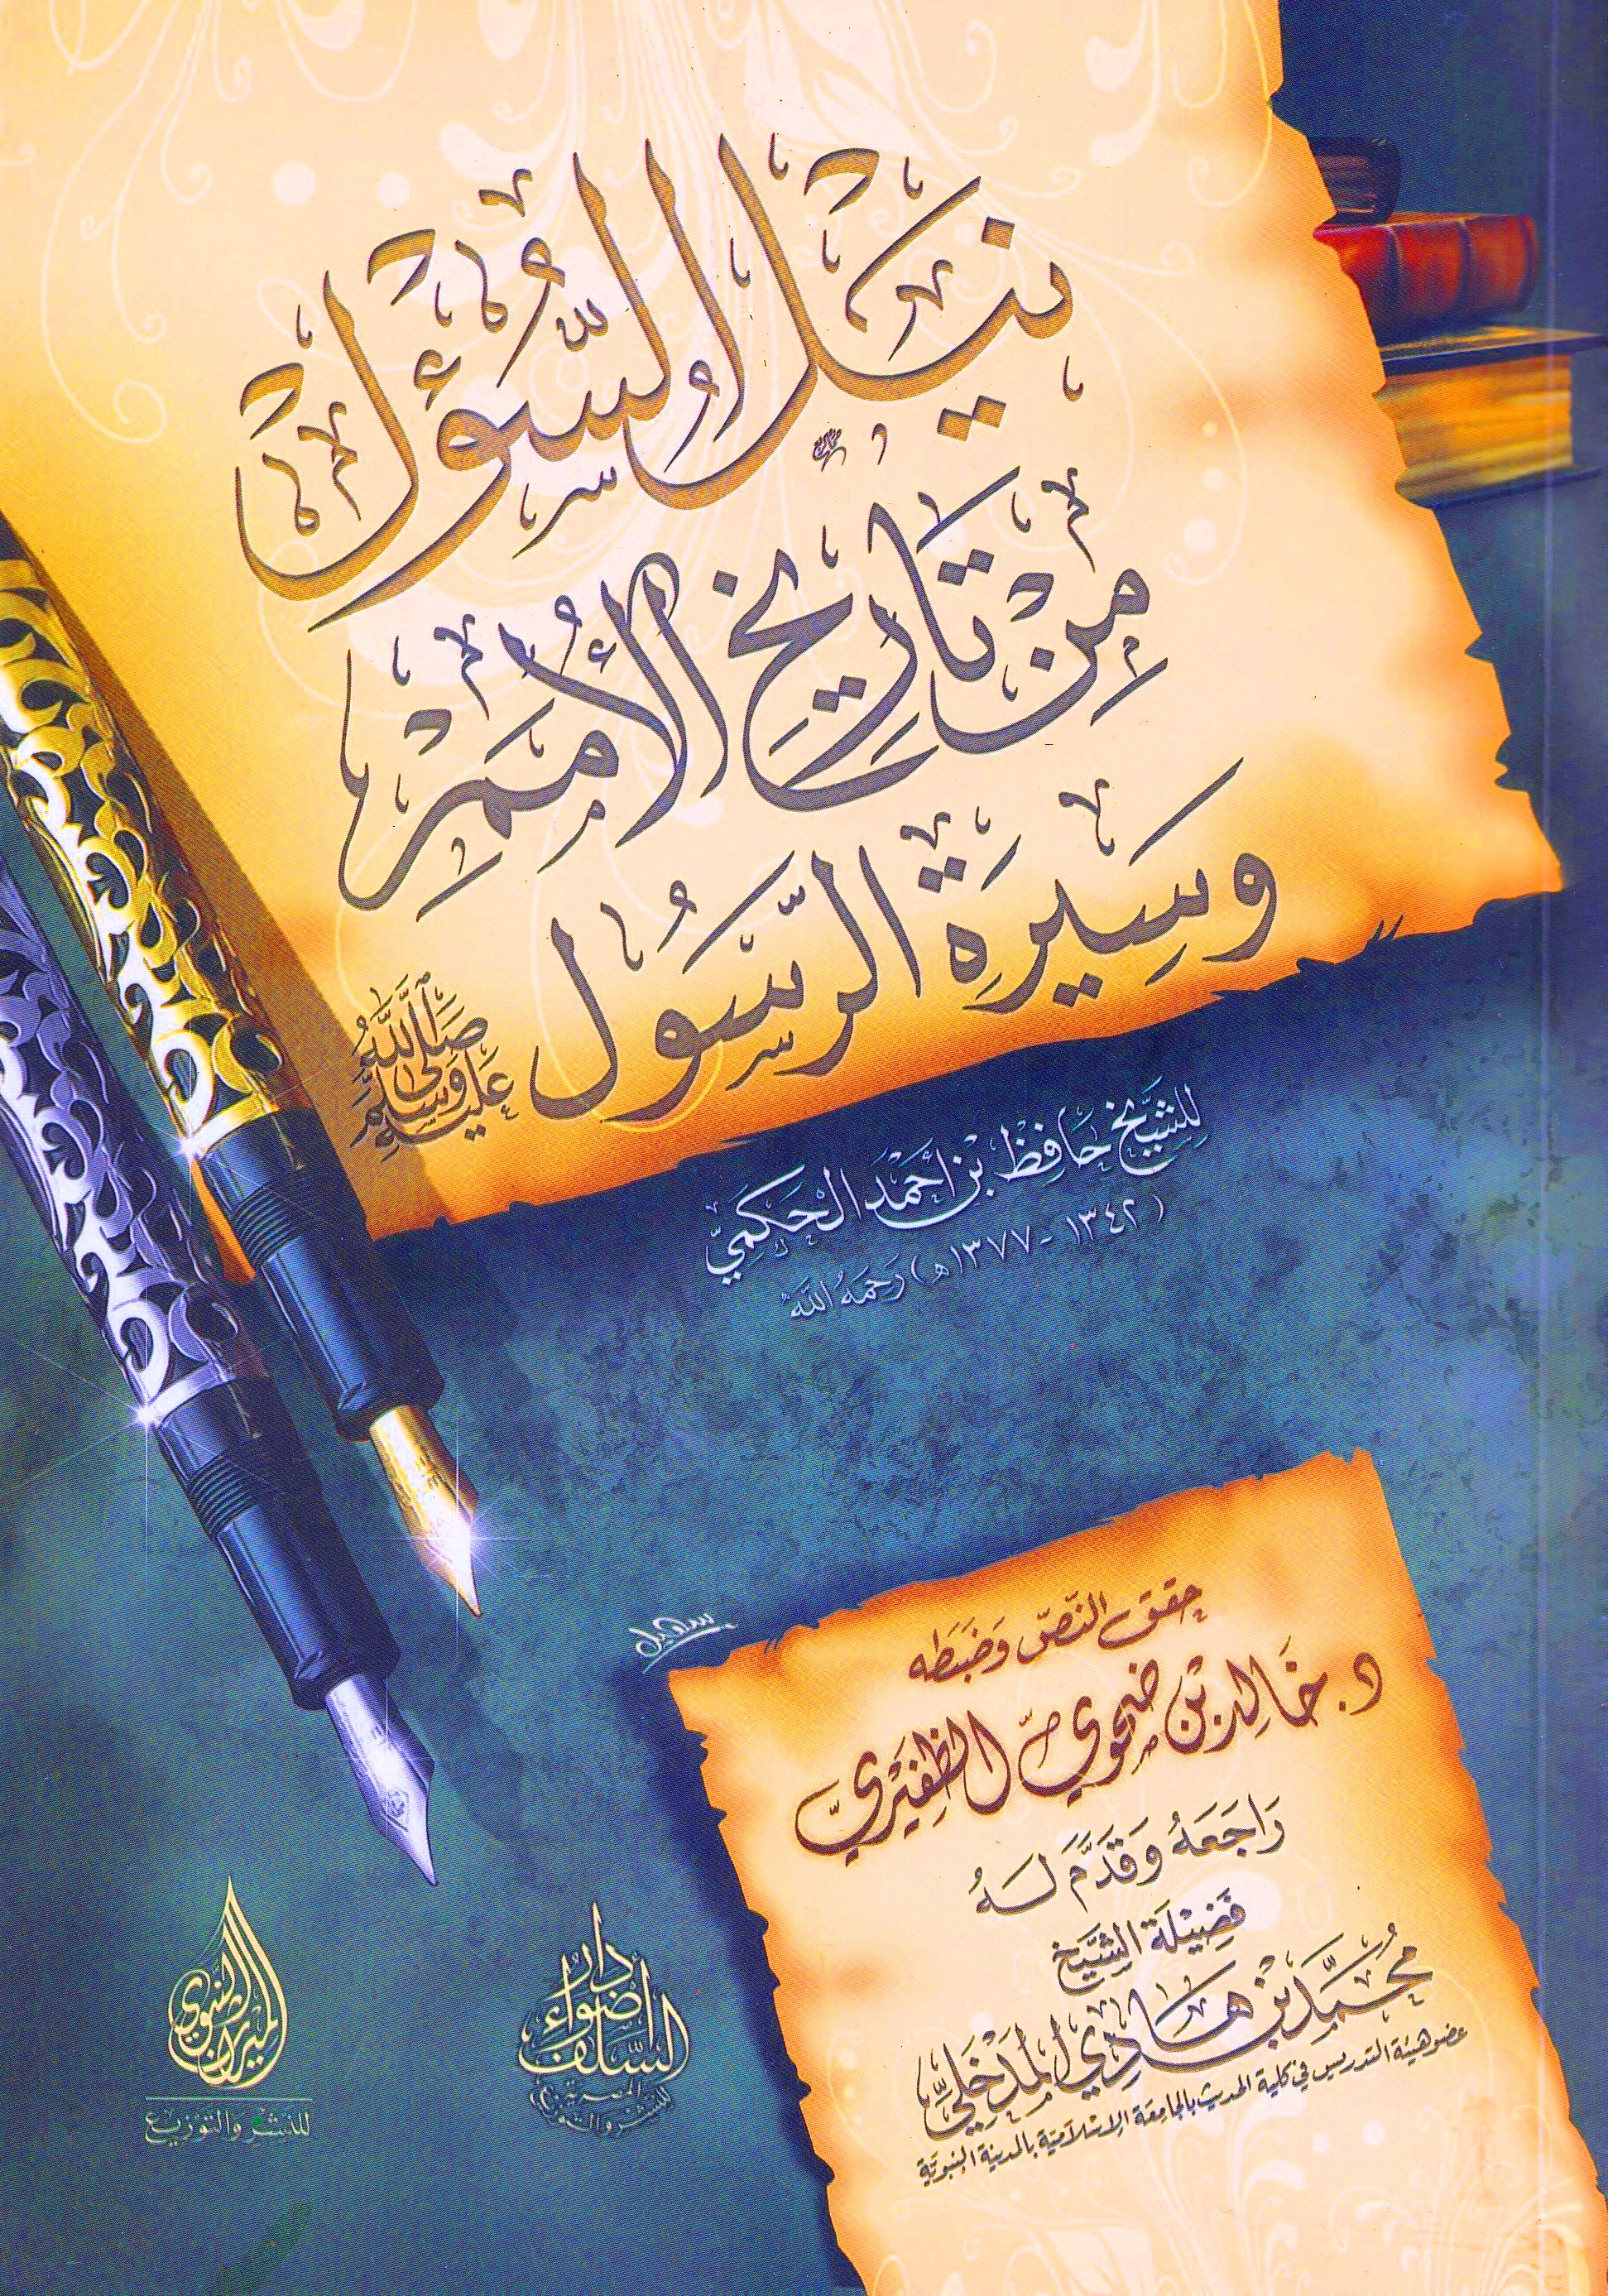 نَيْلُ السُّؤْلِ
مِنْ تَارِيخِ الأُمَمِ
وَسِيرَةِ الرَّسُولِ
صَلَّى اللَّهُ عَلَيْهِ وَسَلَّمَ
لِلشَّيْخِ حَافِظِ بْنِ أَحْمَدَ الْحَكَمِيِّ
(١٣٤٢ - ١٣٧٧هـ) رَحِمَهُ اللَّهُ
سهيل
حقق النَّصّ وَضَبَطَه
د. خَالِد بْن ضحوي الظَّفِيرِيّ
رَاجَعَهُ وَقَدَّمَ لَهُ
فَضِيلَة الشَّيْخ
مُحَمَّد بْن هَادِي الْمَدْخَلِيّ
عضو هيئة التدريس في كلية الحديث بالجامعة الإسلامية بالمدينة النبوية
دار أضواء السلف
المصرية
للنشر والتوزيع
الميراث النبوي
للنشر والتوزيع